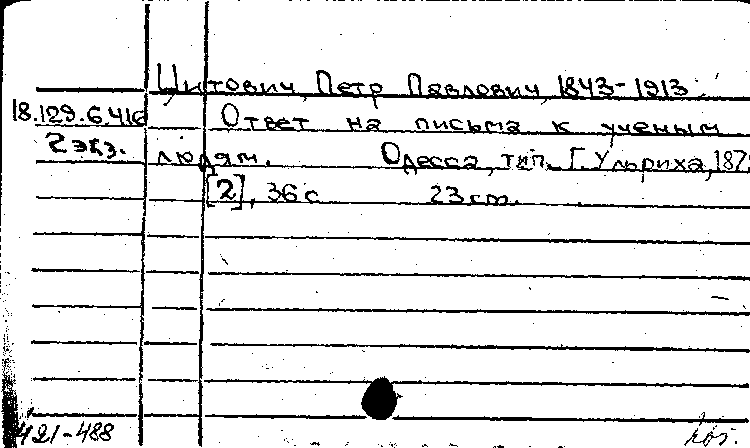 Цитович, Петр Павлович, 1843-1913
18.129.6.416
Ответ на письма к ученым
2 экз.
людям. Одесса, тип. Г. Ульриха, 187
[2], 36 с 23 cm.
421-488